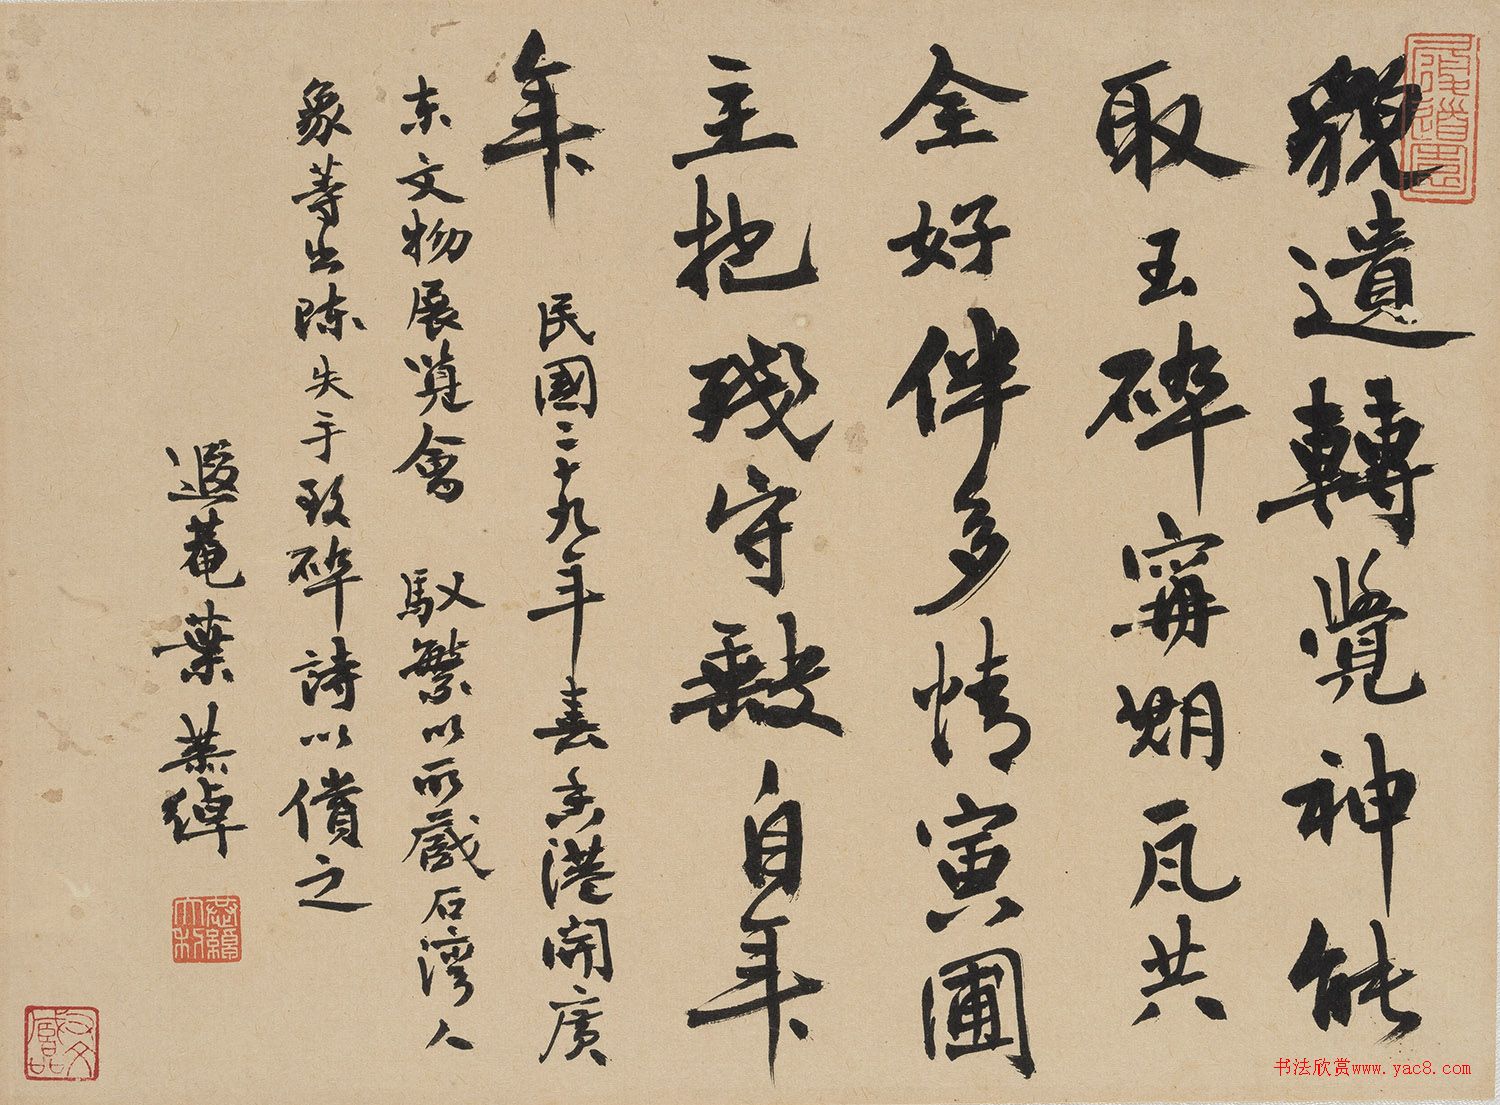 貌遺轉覺神能
取玉碎甯期瓦共
全好伴多情寅圃
主抱殘守缺自年
年 民國二十九年春香港開廣
東文物展覽會 馭繁以所藏石灣人
象等出陳失于致碎詩以償之
遐菴葉恭綽
书法欣赏www.yac8.com